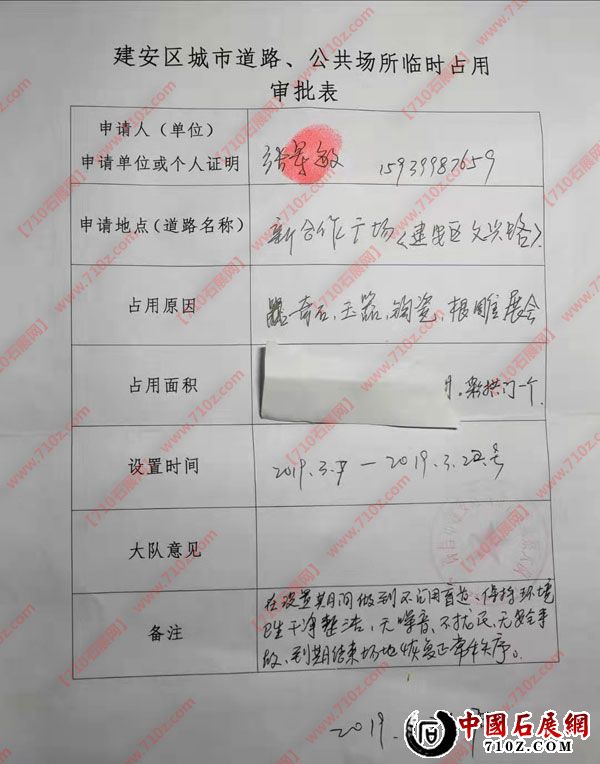 建安区城市道路、公共场所临时占用
审批表
申请人（单位）
申请单位或个人证明
张 敏 15939987659
申请地点（道路名称）
新合作广场（建安区文兴路）
占用原因
奇石、玉器、钧瓷、根雕展会
占用面积
彩拱门一个
设置时间
2019.3. — 2019.3.2 号
大队意见
备注
在设置期间做到不占用盲道、保持环境
卫生干净整洁，无噪音、不扰民、无安全事
故、到期结束场地恢复正常秩序。
2019.
中國石展網
710Z.COM
【710石展网】
www.710z.com